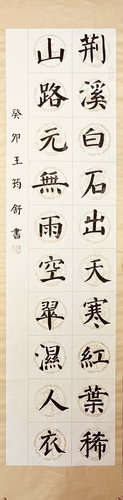 荆溪白石出天寒紅葉稀
山路元無雨空翠濕人衣
癸卯王筠舒書